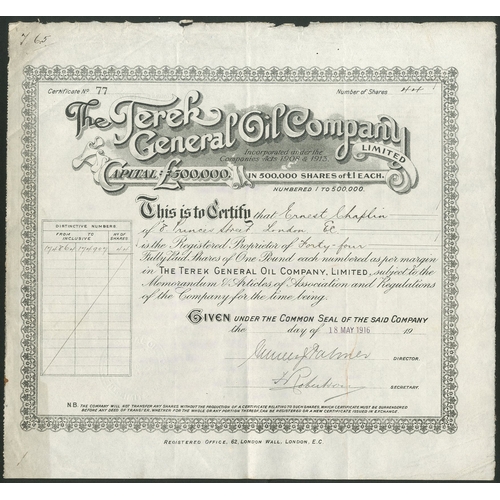 765
Certificate No 77
Number of Shares 44
The Terek
General Oil Company
LIMITED
Incorporated under the
Companies Acts 1908 & 1913.
CAPITAL £500,000.
IN 500,000 SHARES OF £1 EACH,
NUMBERED 1 TO 500,000.
This is to Certify that Ernest Chaplin
of 8 Princes Street London EC
is the Registered Proprietor of Forty-four
Fully Paid Shares of One Pound each numbered as per margin
in THE TEREK GENERAL OIL COMPANY, LIMITED, subject to the
Memorandum & Articles of Association and Regulations
of the Company for the time being.
DISTINCTIVE NUMBERS
FROM TO
INCLUSIVE
No OF
SHARES
44
GIVEN UNDER THE COMMON SEAL OF THE SAID COMPANY
the day of 18 MAY 1916 19
DIRECTOR
Robertson
SECRETARY.
N.B. THE COMPANY WILL NOT TRANSFER ANY SHARES WITHOUT THE PRODUCTION OF A CERTIFICATE RELATING TO SUCH SHARES, WHICH CERTIFICATE MUST BE SURRENDERED
BEFORE ANY DEED OF TRANSFER, WHETHER FOR THE WHOLE OR ANY PORTION THEREOF, CAN BE REGISTERED OR A NEW CERTIFICATE ISSUED IN EXCHANGE.
REGISTERED OFFICE, 62, LONDON WALL, LONDON, E.C.